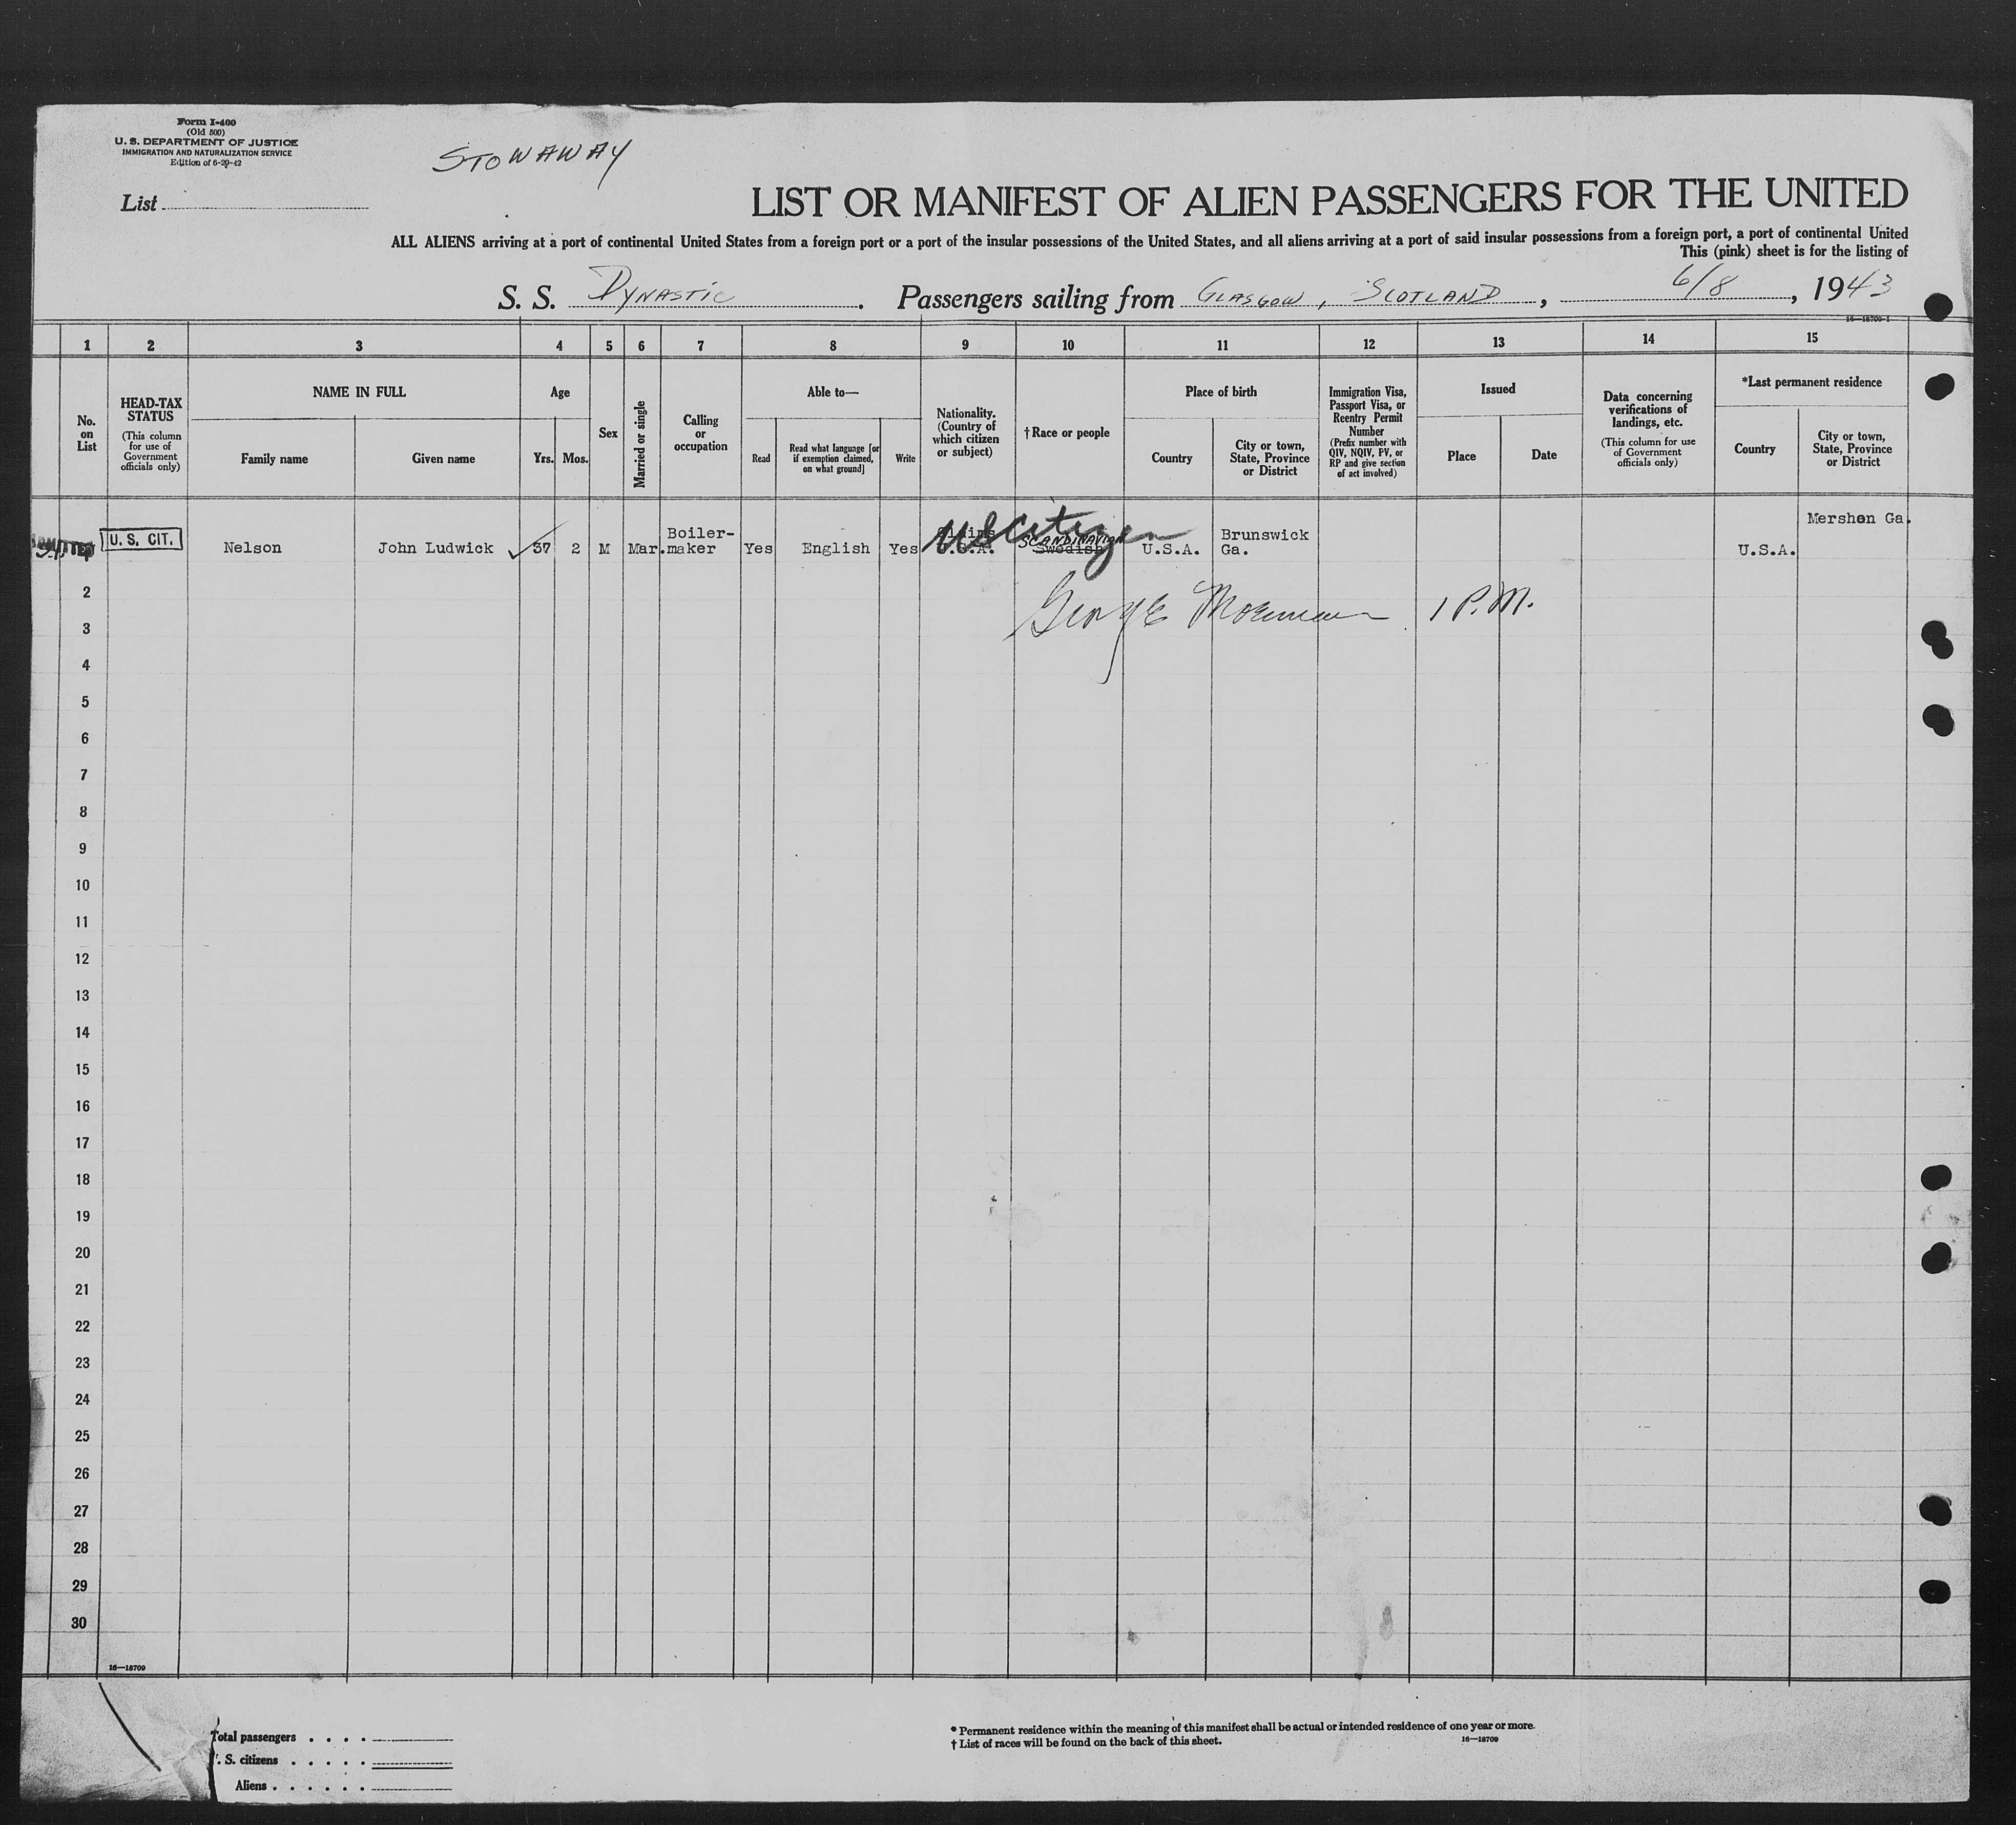 Form I-400
(Old 500)
U. S. DEPARTMENT OF JUSTICE
IMMIGRATION AND NATURALIZATION SERVICE
Edition of 6-29-42
STOWAWAY
List
LIST OR MANIFEST OF ALIEN PASSENGERS FOR THE UNITED
ALL ALIENS arriving at a port of continental United States from a foreign port or a port of the insular possessions of the United States, and all aliens arriving at a port of said insular possessions from a foreign port, a port of continental United
This (pink) sheet is for the listing of
S. S. DYNASTIC. Passengers sailing from GLASGOW, SCOTLAND, 6/8, 1943
16—18709-1
1 2 3 4 5 6 7 8 9 10 11 12 13 14 15
No. on List
HEAD-TAX STATUS
(This column for use of Government officials only)
NAME IN FULL
Family name
Given name
Age
Yrs. Mos.
Sex
Married or single
Calling or occupation
Able to—
Read
Read what language [or if exemption claimed, on what ground]
Write
Nationality. (Country of which citizen or subject)
†Race or people
Place of birth
Country
City or town, State, Province or District
Immigration Visa, Passport Visa, or Reentry Permit Number
(Prefix number with QIV, NQIV, PV, or RP and give section of act involved)
Issued
Place
Date
Data concerning verifications of landings, etc.
(This column for use of Government officials only)
*Last permanent residence
Country
City or town, State, Province or District
ADMITTED
1
U. S. CIT.
Nelson
John Ludwick
37 2 M Mar.
Boiler-
maker
Yes English Yes
US Citizen
U.S.A.
SCANDINAVIAN
Swedish
U.S.A.
Brunswick
Ga.
U.S.A.
Mershon Ga.
George 1 P.M.
2
3
4
5
6
7
8
9
10
11
12
13
14
15
16
17
18
19
20
21
22
23
24
25
26
27
28
29
30
16—18709
Total passengers . . . .
. S. citizens . . . . .
Aliens . . . . . .
* Permanent residence within the meaning of this manifest shall be actual or intended residence of one year or more.
† List of races will be found on the back of this sheet.
16—18709